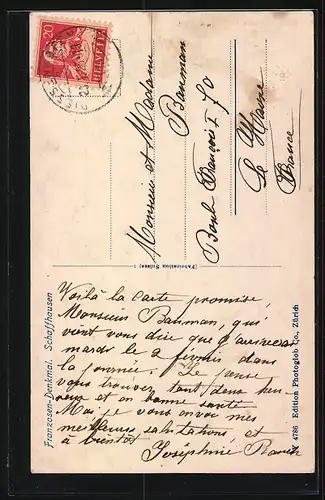 20
HELVETIA
Monsieur et Madame
Bauman
Boul François I 70
Le Havre
France
(Fabrication Suisse)
Franzosen-Denkmal. Schaffhausen
4786 Edition Photoglob Co., Zürich
Voilà la carte promise,
Monsieur Bauman, qui
vient vous dire que j'arriverai
mardi le 2 février dans
la journée. Je pense
vous trouver tout deux heu-
reux et en bonne santé
Moi, je vous envoie mes
meilleures salutations, et
à bientôt Joséphine